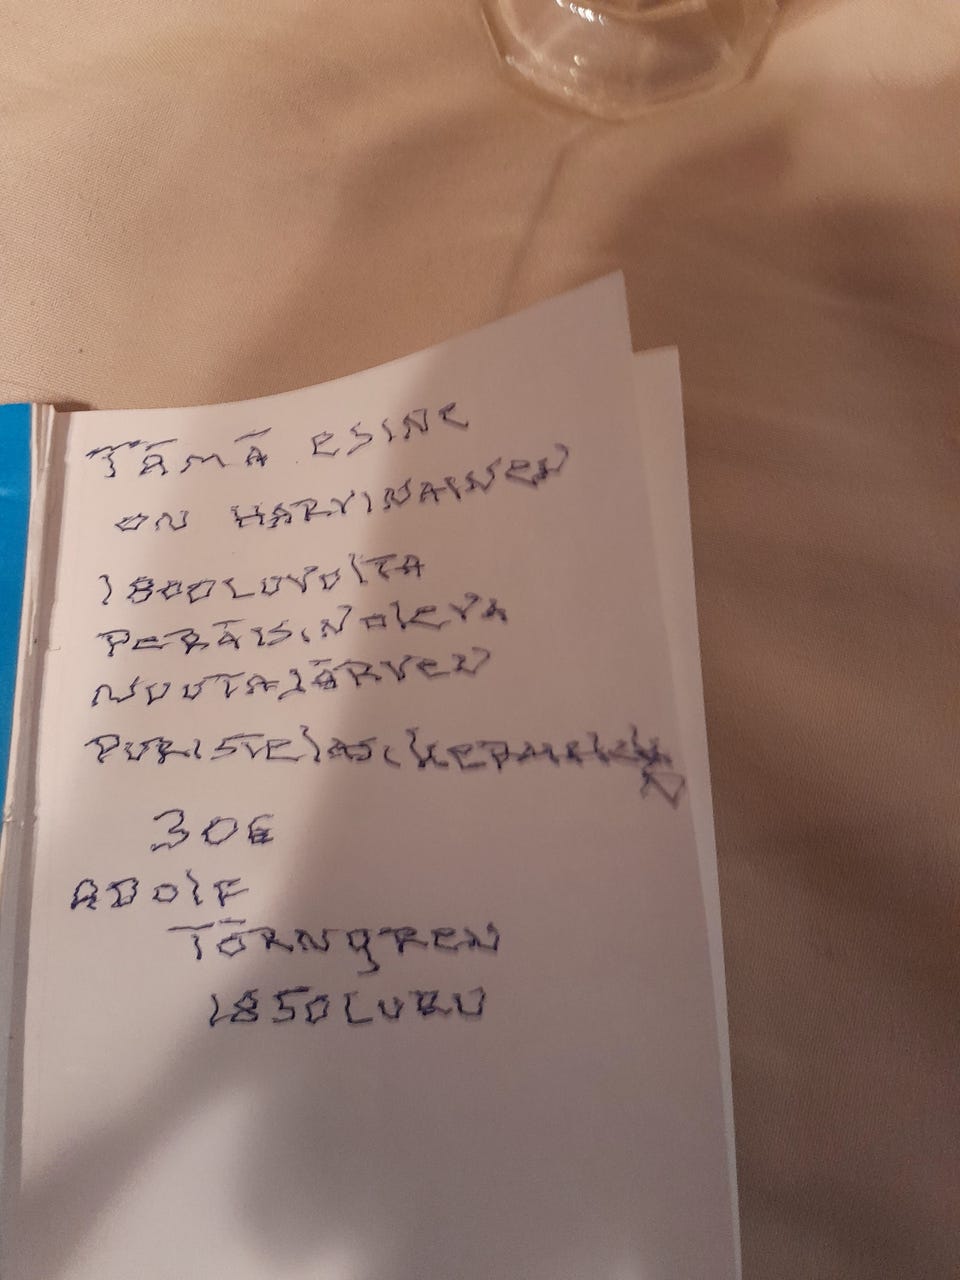 TÄMÄ ESINE
ON HARVINAINEN
1800LUVOLTA
PERÄISINOLEVA
NUUTAJÄRVEN
PURISTELASI
30€
ADOLF
TÖRNGREN
1850LUKU